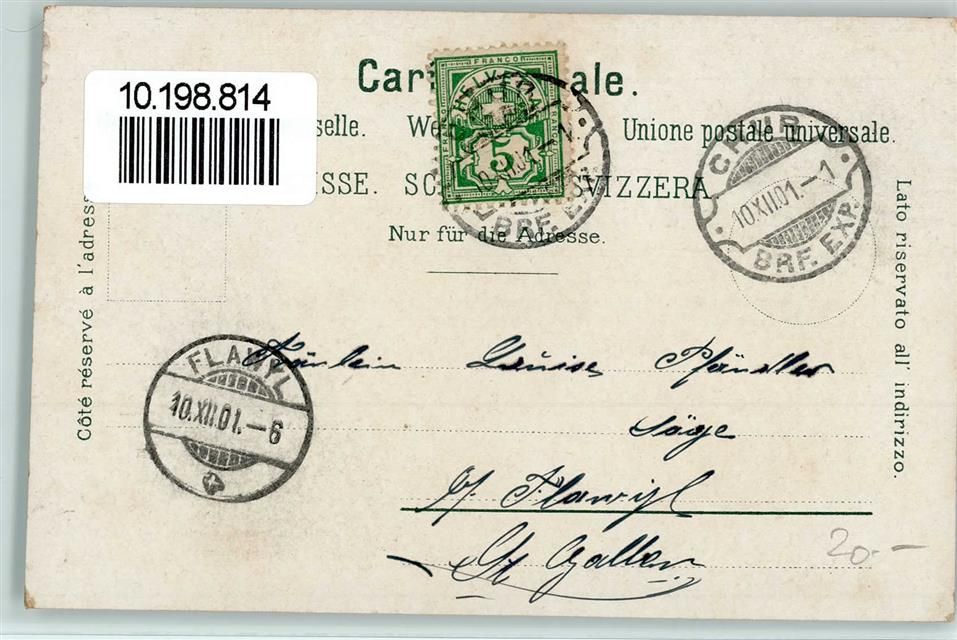 10.198.814
Cart ale.
selle. We Unione postale universale.
ISSE. SC SVIZZERA
Nur für die Adresse.
Côté réservé à l'adres
Lato riservato all' indirizzo.
FRANCO
HELVETIA
5
10.XII.01.
BRF. EXP.
CHUR
10.XII.01.-1
BRF. EXP.
FLAWYL
10.XII.01.-6
Fräulein Louise Pfändler
Säge
b/ Flawyl
St. Gallen
20.-